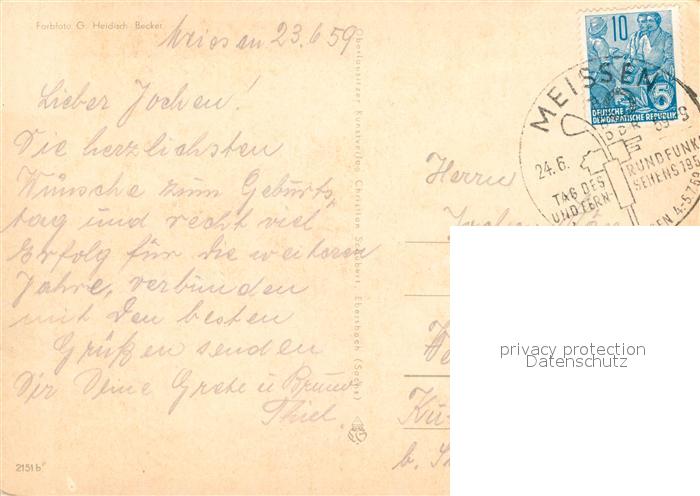 Farbfoto G. Heidisch Becker
Meissen 23.6.59
Lieber Jochen!
Die herzlichsten
Wünsche zum Geburts
tag und recht viel
Erfolg für die weiteren
Jahre, verbunden
mit den besten
Grüßen senden
Dir Deine Grete u. Bruno
Thiel.
2151 b
Oberlausitzer Kunstverlag Christian Schubert, Ebersbach (Sachs)
Herrn
10
5
DEUTSCHE
DEMOKRATISCHE REPUBLIK
MEISSEN
DDR
24.6.
TAG DES
RUNDFUNK
UND FERN
SEHENS 195
EN 4.-5.
b.
privacy protection
Datenschutz